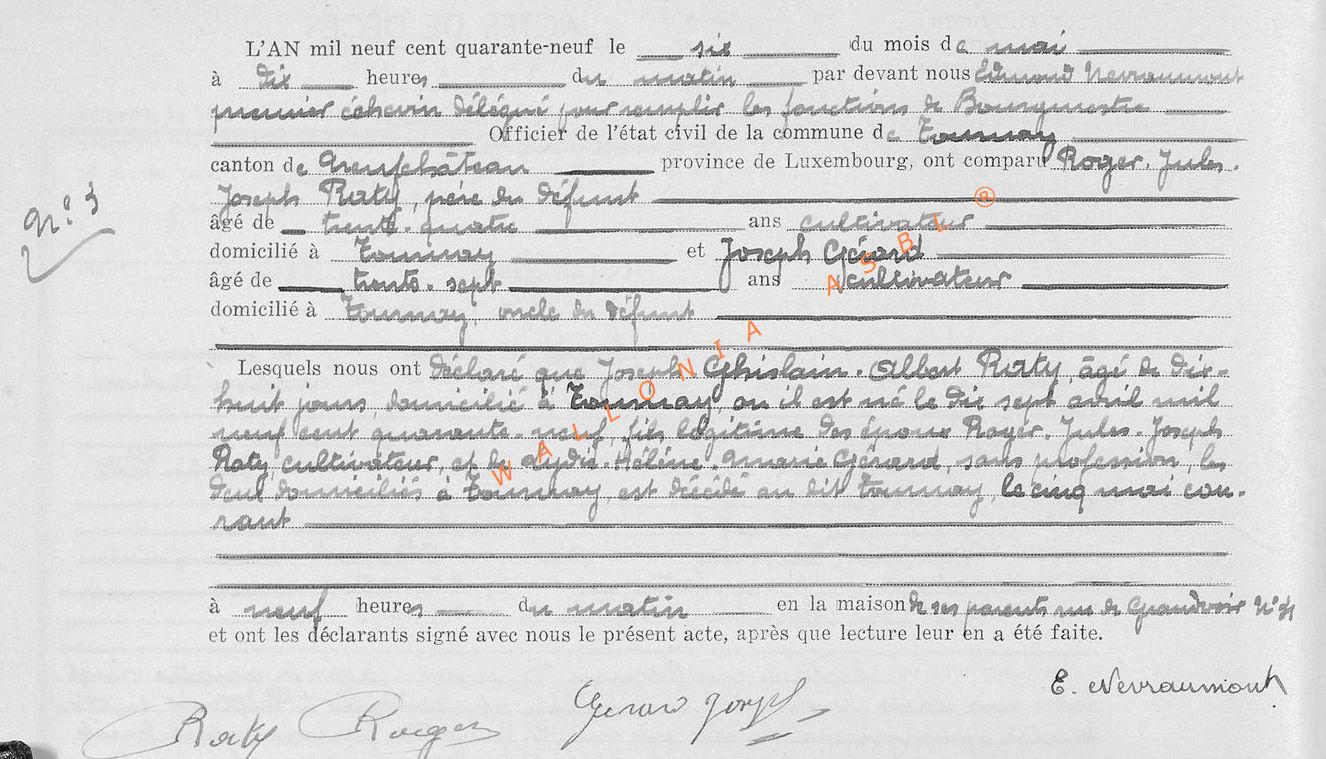 L'AN mil neuf cent quarante-neuf le six du mois de mai
à dix heures du matin par devant nous Edmond Nevraumont
premier échevin délégué pour remplir les fonctions de Bourgmestre
Officier de l'état civil de la commune de Tournay
canton de Neufchâteau province de Luxembourg, ont comparu Roger. Jules.
Joseph Raty, père du défunt
âgé de trente. quatre ans cultivateur
domicilié à Tournay et Joseph Gérard
âgé de trente. sept ans cultivateur
domicilié à Tournay, oncle du défunt
N° 3
Lesquels nous ont déclaré que Joseph. Ghislain. Albert Raty, âgé de dix-
huit jours, domicilié à Tournay, où il est né le dix sept avril mil
neuf cent quarante-neuf, fils légitime des époux Roger. Jules. Joseph
Raty, cultivateur, et de Lydie. Hélène. Marie Gérard, sans profession, les
deux domiciliés à Tournay, est décédé au dit Tournay, le cinq mai cou-
rant
à neuf heures du matin en la maison de ses parents rue de Grandvoir N°
et ont les déclarants signé avec nous le présent acte, après que lecture leur en a été faite.
E. Nevraumont
Raty Roger
Gerard Joseph
WALLONIA ASBL ®